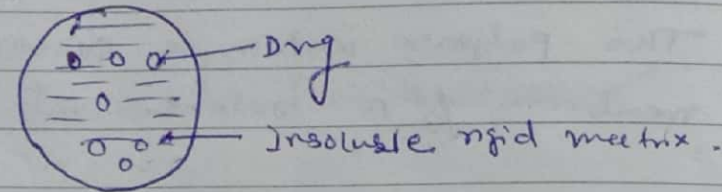 Drug
Insoluble rigid meetrix.